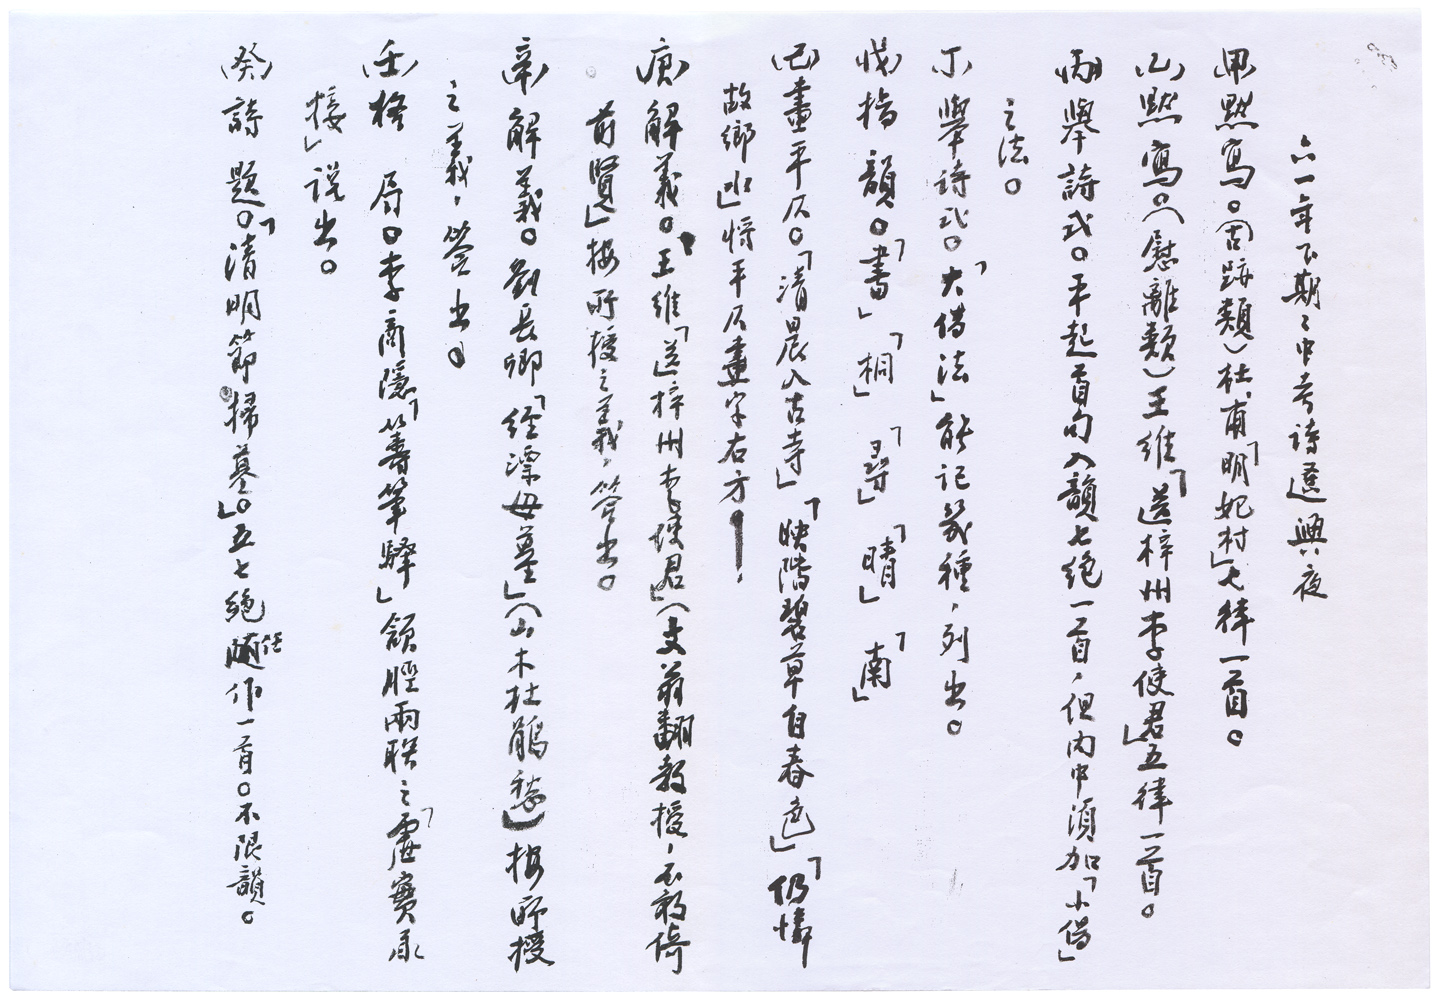 六一年下期期中考詩選興夜
(甲)默寫。(古跡類)杜甫「明妃村」七律一首。
(乙)默寫。(慰離類)王維「送梓州李使君」五律一首。
(丙)舉詩式。平起首句入韻七絕一首，但內中須加「小借」
之法。
(丁)舉詩式。「大借法」能記幾種，列出。
(戊)指韻。「書」「桐」「尋」「晴」「南」
(己)畫平仄。「清晨入古寺」「映階碧草自春色」「仍憐
故鄉水」將平仄畫字右方
(庚)解義。王維「送梓州李使君」(文翁翻教授，不敢倚
前賢」按所授之義，答出。
(辛)解義。劉長卿「經漂母墓」(山木杜鵑愁)按所授
之義，答出。
(壬)格局。李商隱「籌筆驛」頷脛兩联之「虛實承
接」說出。
(癸)詩題。「清明節掃墓」。五七絕隨任作一首。不限韻。